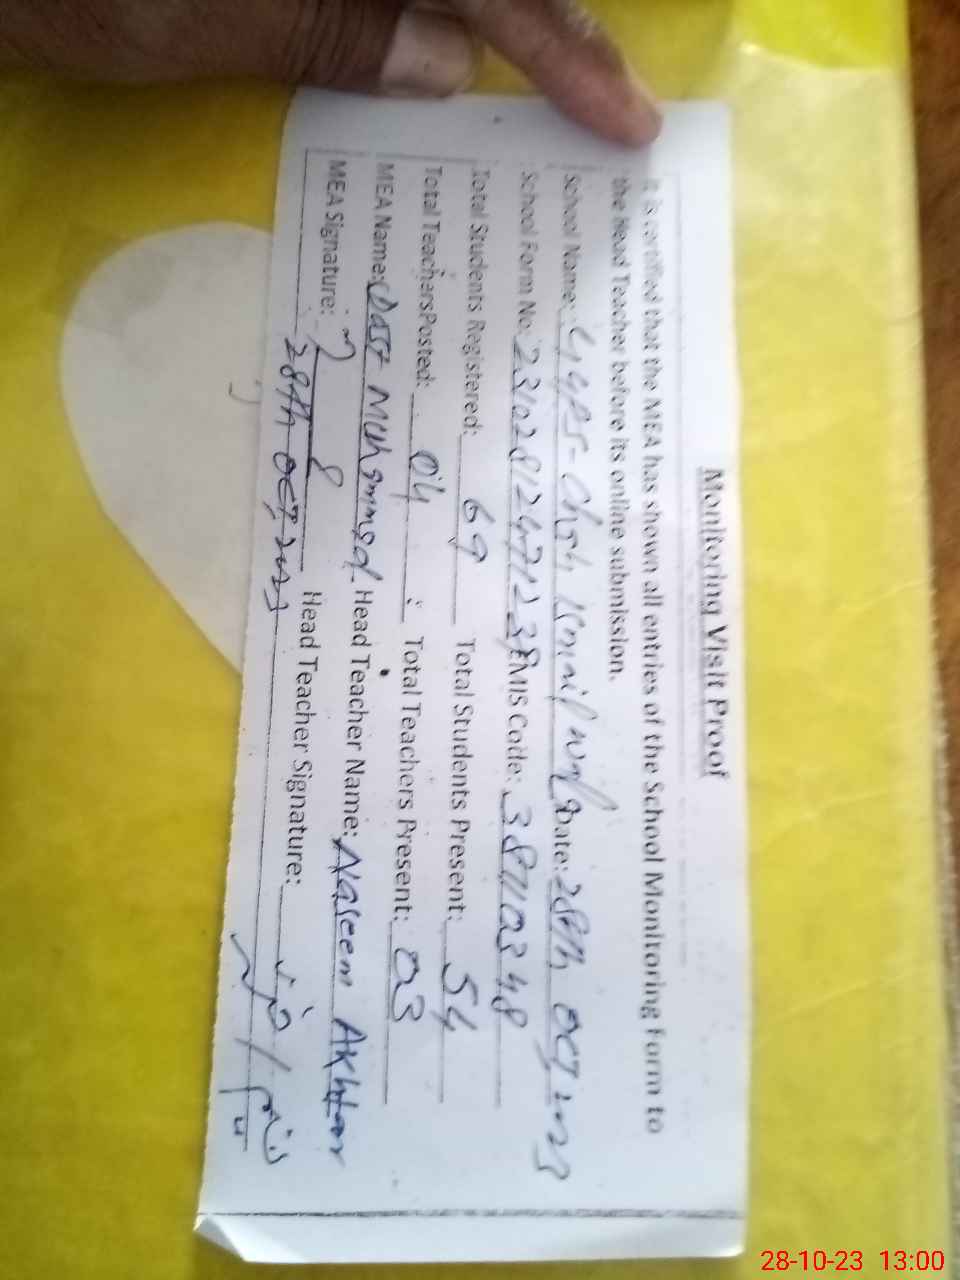 Monitoring Visit Proof
It is certified that the MEA has shown all entries of the School Monitoring Form to
the Head Teacher before its online submission.
School Name: GGPS-Chah Date: 28th OCT, 2023
School Form No: EMIS Code: 38110348
Total Students Registered: 69 Total Students Present: 54
Total Teachers Posted: 04 Total Teachers Present: 03
MEA Name: Dost Muhammad Head Teacher Name: Naseem Akhtar
MEA Signature: Head Teacher Signature:
28th OCT, 2023
28-10-23 13:00